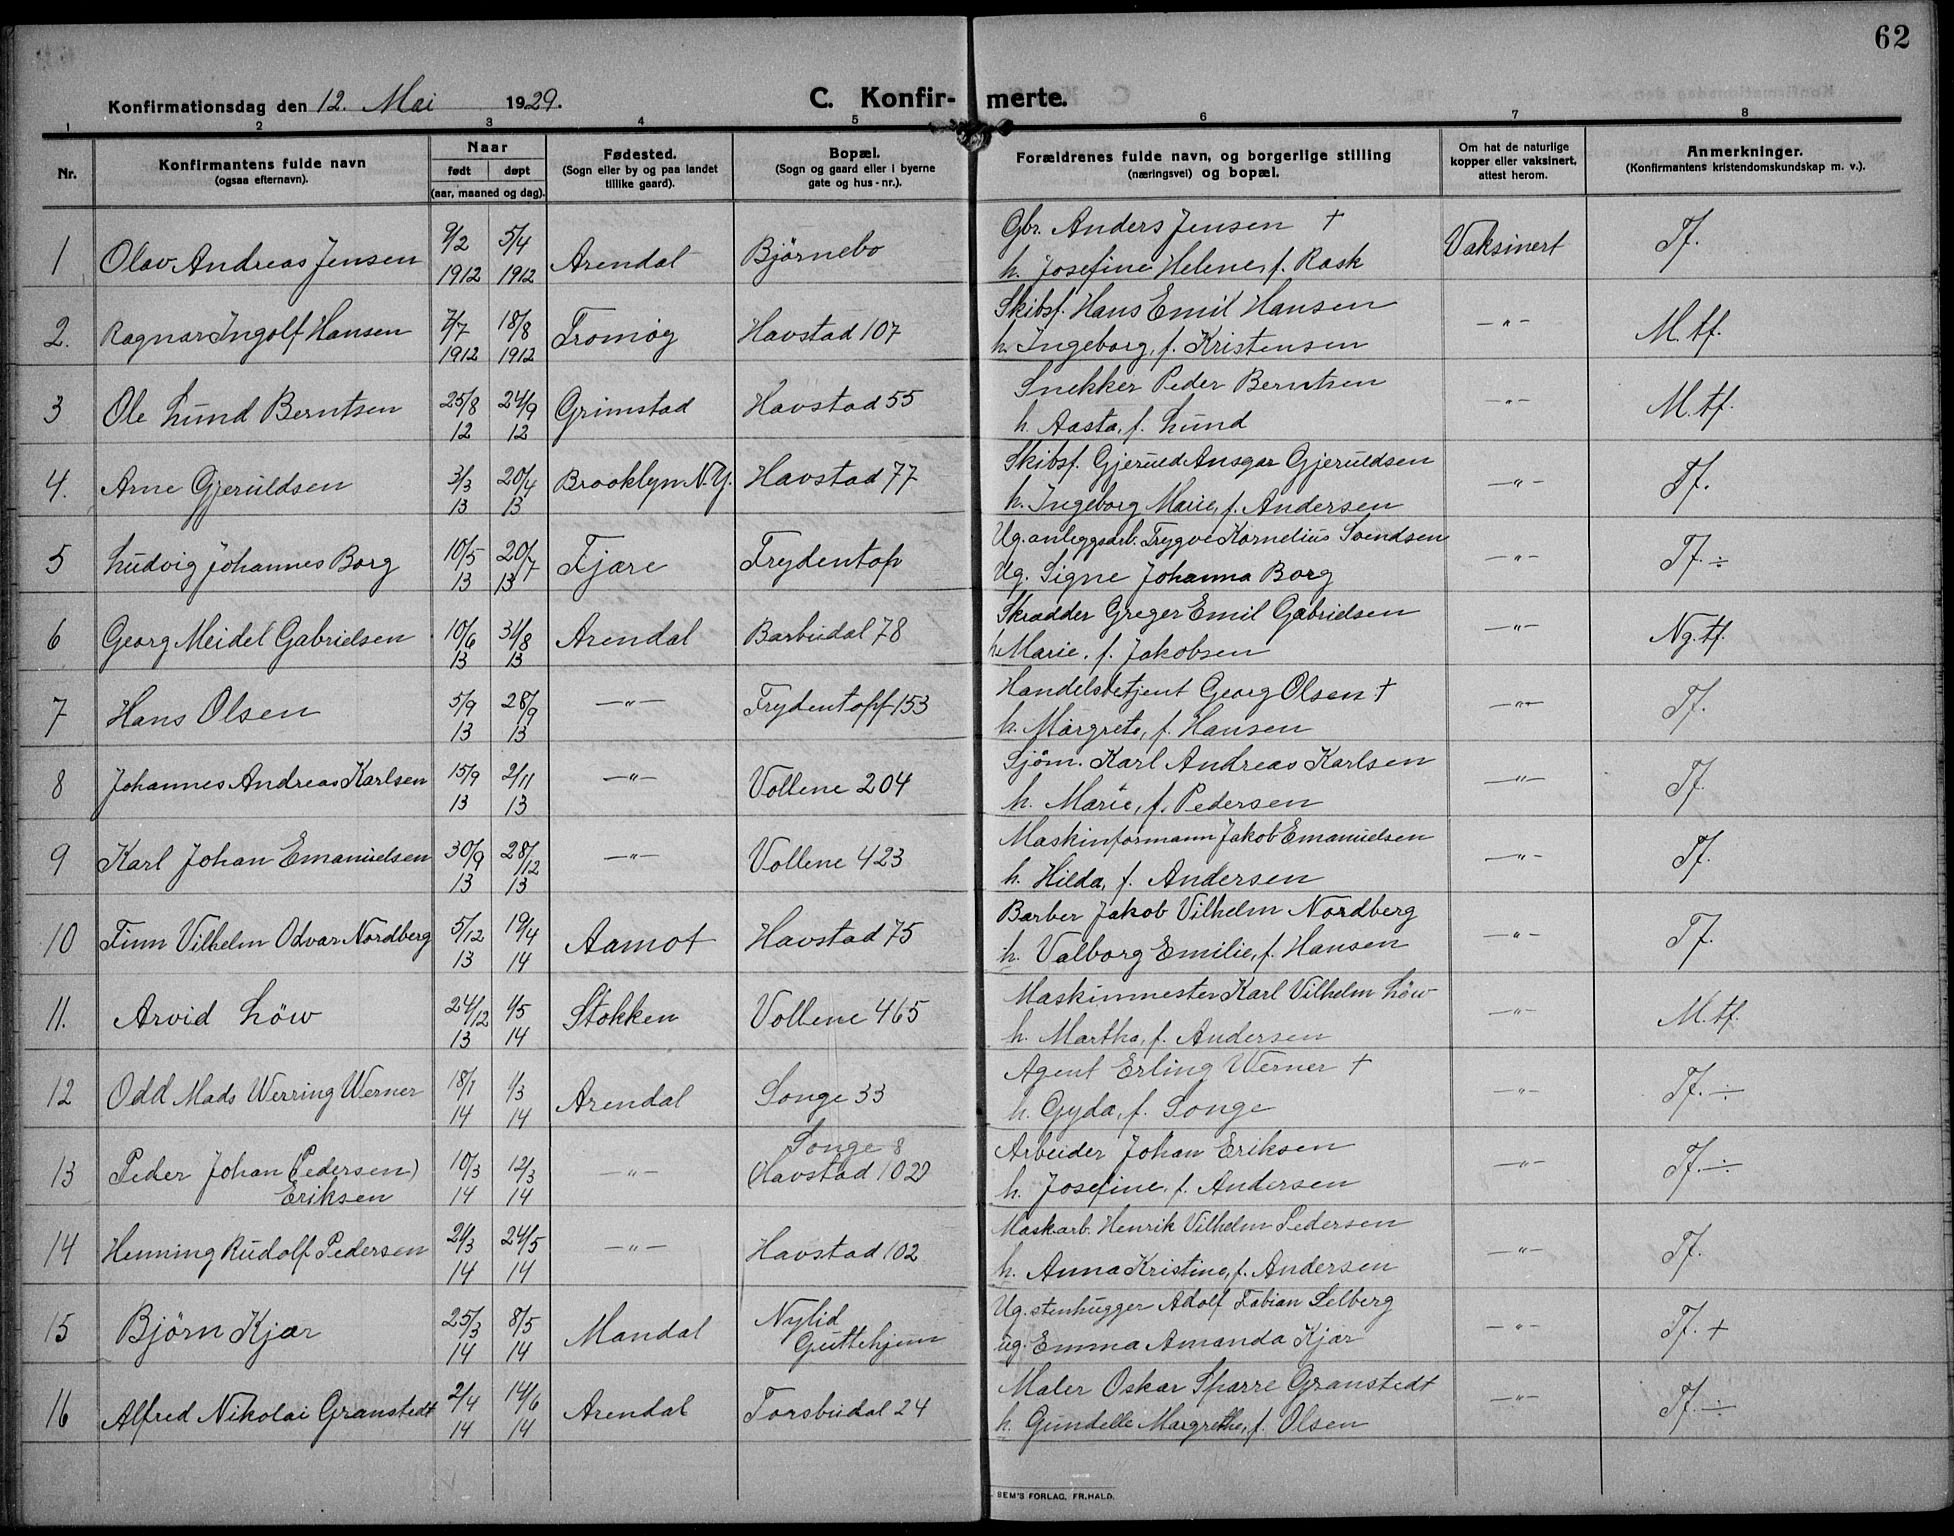 62
Konfirmationsdag den 12. Mai 1929.
C. Konfir- merte.
1 2 3 4 5 6 7 8
Nr.
Konfirmantens fulde navn
(ogsaa efternavn).
Naar
født døpt
(aar, maaned og dag).
Fødested.
(Sogn eller by og paa landet
tillike gaard).
Bopæl.
(Sogn og gaard eller i byerne
gate og hus-nr.).
Forældrenes fulde navn, og borgerlige stilling
(næringsvei) og bopæl.
Om hat de naturlige
kopper eller vaksinert,
attest herom.
Anmerkninger.
(Konfirmantens kristendomskundskap m. v.).
1 Olav Andreas Jensen 9/2 1912 5/4 1912 Arendal Bjørnebo Gbr. Anders Jensen † Vaksinert Tf.
h. Josefine Helene, f. Rask
2. Ragnar Ingolf Hansen 7/7 1912 18/8 1912 Tromøy Havstad 107 Skibsf. Hans Emil Hansen -"- M.tf.
h. Ingeborg, f. Kristensen
3 Ole Lund Berntsen 25/8 12 24/9 12 Grimstad Havstad 55 Snekker Peder Berntsen -"- M.tf.
h. Aasta, f. Lund
4. Arne Gjeruldsen 3/3 13 20/4 13 Brooklyn N.Y. Havstad 77 Skibsf. Gjeruld Ansgar Gjeruldsen -"- Tf.
h. Ingeborg Marie, f. Andersen
5 Ludvig Johannes Borg 10/5 13 20/7 13 Fjære Frydentop Ug. anleggsarb. Trygve Kornelius Svendsen -"- Tf. ÷
Ug. Signe Johanna Borg
6 Georg Meidel Gabrielsen 10/6 13 31/8 13 Arendal Barbudal 78 Skrædder Greger Emil Gabrielsen -"- Ng.tf.
h. Marie, f. Jakobsen
7 Hans Olsen 5/9 13 28/9 13 -"- Frydentopf 153 Handelsbetjent Georg Olsen † -"- Tf.
h. Margrete, f. Hansen
8 Johannes Andreas Karlsen 15/9 13 2/11 13 -"- Vollene 204 Sjøm. Karl Andreas Karlsen -"- Tf.
h. Marie, f. Pedersen
9 Karl Johan Emanuelsen 30/9 13 28/12 13 -"- Vollene 423 Maskinformann Jakob Emanuelsen -"- Tf.
h. Hilda, f. Andersen
10 Finn Vilhelm Odvar Nordberg 5/12 13 19/4 14 Aamot Havstad 75 Barber Jakob Vilhelm Nordberg -"- Tf.
h. Valborg Emilie, f. Hansen
11. Arvid Löw 24/12 13 1/5 14 Stokken Vollene 465 Maskinmester Karl Vilhelm Löw -"- M.tf.
h. Martha, f. Andersen
12 Odd Mads Werring Werner 18/1 14 1/3 14 Arendal Songe 33 Agent Erling Werner † -"- Tf. ÷
h. Gyda, f. Songe
Songe 8
13 Peder Johan (Pedersen) 10/3 14 12/3 14 -"- (Havstad 102) Arbeider Johan Eriksen -"- Tf. ÷
Eriksen h. Josefine, f. Andersen
14 Henning Rudolf Pedersen 21/3 14 24/5 14 -"- Havstad 102 Maskarb. Henrik Vilhelm Pedersen -"- Tf.
h. Anna Kristine, f. Andersen
15 Bjørn Kjær 25/3 14 8/5 14 Mandal Nylid Ug. stenhugger Adolf Fabian Selberg -"- Tf. +
Guttehjem ug. Emma Amanda Kjær
16 Alfred Nikolai Granstedt 2/4 14 14/6 14 Arendal Torsbudal 24 Maler Oskar Sparre Granstedt -"- Tf. ÷
h. Gundelle Margrethe, f. Olsen
SEM'S FORLAG, FR.HALD.